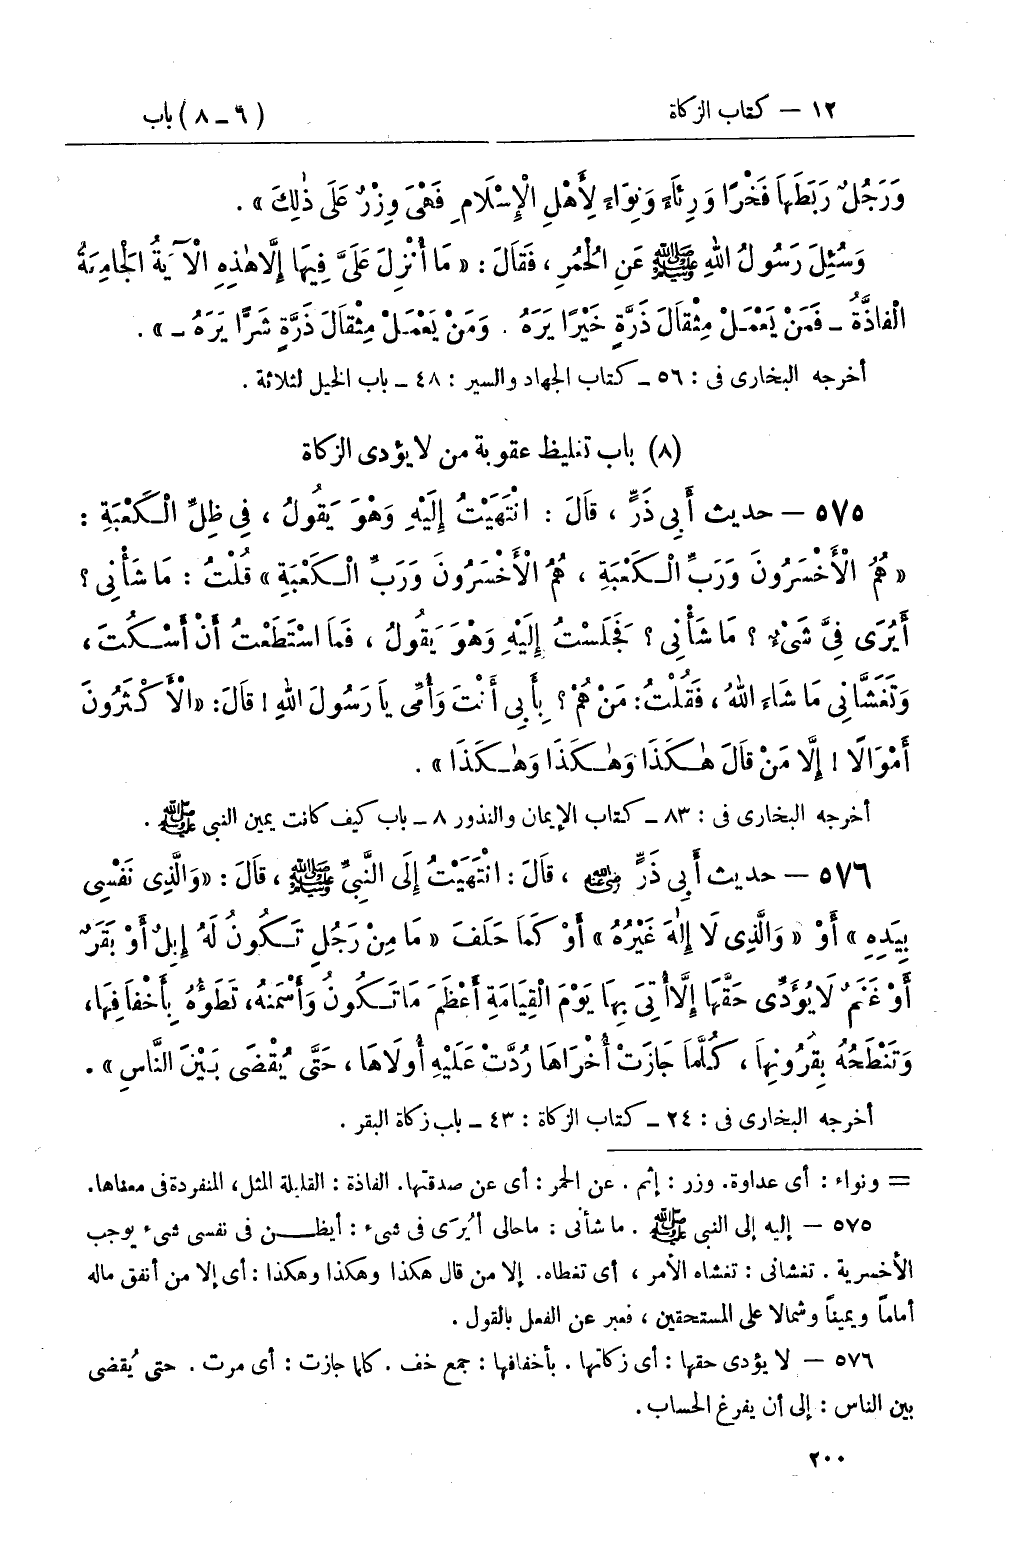 ١٢ – كتاب الزكاة
(٦ – ٨) باب
وَرَجُلٌ رَبَطَهَا فَخْرًا وَرِئَاءً وَنِوَاءً لِأَهْلِ الْإِسْلَامِ فَهْىَ وِزْرٌ عَلَى ذٰلِكَ » .
وَسُئِلَ رَسُولُ اللهِ ﷺ عَنِ الْحُمُرِ ، فَقَالَ : « مَا أُنْزِلَ عَلَىَّ فِيهَا إِلَّا هٰذِهِ الْآيَةُ الْجَامِعَةُ
الْفَاذَّةُ – فَمَنْ يَعْمَلْ مِثْقَالَ ذَرَّةٍ خَيْرًا يَرَهُ . وَمَنْ يَعْمَلْ مِثْقَالَ ذَرَّةٍ شَرًّا يَرَهُ – » .
أخرجه البخارى فى : ٥٦ – كتاب الجهاد والسير : ٤٨ – باب الخيل لثلاثة .
(٨) باب تغليظ عقوبة من لا يؤدى الزكاة
٥٧٥ – حديث أَبِي ذَرٍّ ، قَالَ : انْتَهَيْتُ إِلَيْهِ وَهْوَ يَقُولُ ، فِي ظِلِّ الْكَعْبَةِ :
« هُمُ الْأَخْسَرُونَ وَرَبِّ الْكَعْبَةِ ، هُمُ الْأَخْسَرُونَ وَرَبِّ الْكَعْبَةِ » قُلْتُ : مَا شَأْنِي ؟
أَيُرَى فِيَّ شَيْءٌ ؟ مَا شَأْنِي ؟ فَجَلَسْتُ إِلَيْهِ وَهْوَ يَقُولُ ، فَمَا اسْتَطَعْتُ أَنْ أَسْكُتَ ،
وَتَغَشَّانِي مَا شَاءَ اللهُ ، فَقُلْتُ : مَنْ هُمْ ؟ بِأَبِي أَنْتَ وَأُمِّي يَا رَسُولَ اللهِ ! قَالَ : « الْأَكْثَرُونَ
أَمْوَالًا ! إِلَّا مَنْ قَالَ هٰكَذَا وَهٰكَذَا وَهٰكَذَا » .
أخرجه البخارى فى : ٨٣ – كتاب الإيمان والنذور ٨ – باب كيف كانت يمين النبى ﷺ .
٥٧٦ – حديث أَبِي ذَرٍّ رضي الله عنه ، قَالَ : انْتَهَيْتُ إِلَى النَّبِيِّ ﷺ ، قَالَ : « وَالَّذِى نَفْسِي
بِيَدِهِ » أَوْ « وَالَّذِى لَا إِلٰهَ غَيْرُهُ » أَوْ كَمَا حَلَفَ « مَا مِنْ رَجُلٍ تَكُونُ لَهُ إِبِلٌ أَوْ بَقَرٌ
أَوْ غَنَمٌ لَا يُؤَدِّى حَقَّهَا إِلَّا أُتِىَ بِهَا يَوْمَ الْقِيَامَةِ أَعْظَمَ مَا تَكُونُ وَأَسْمَنَهُ، تَطَؤُهُ بِأَخْفَافِهَا،
وَتَنْطَحُهُ بِقُرُونِهَا ، كُلَّمَا جَازَتْ أُخْرَاهَا رُدَّتْ عَلَيْهِ أُولَاهَا ، حَتَّى يُقْضَى بَيْنَ النَّاسِ » .
أخرجه البخارى فى : ٢٤ – كتاب الزكاة : ٤٣ – باب زكاة البقر .
= ونواء : أى عداوة. وزر : إثم . عن الحمر : أى عن صدقتها. الفاذة : القليلة المثل، المنفردة فى معناها.
٥٧٥ – إليه إلى النبى ﷺ . ما شأنى : ما حالى أيُرَى فى شىء : أيظن فى نفسى شىء يوجب
الأخسرية . تغشانى : تغشاه الأمر ، أى تغطاه. إلا من قال هكذا وهكذا وهكذا : أى إلا من أنفق ماله
أماماً ويميناً وشمالا على المستحقين ، فعبر عن الفعل بالقول .
٥٧٦ – لا يؤدى حقها : أى زكاتها . بأخفافها : جمع خف . كلما جازت : أى مرت . حتى يُقضى
بين الناس : إلى أن يفرغ الحساب .
٢٠٠